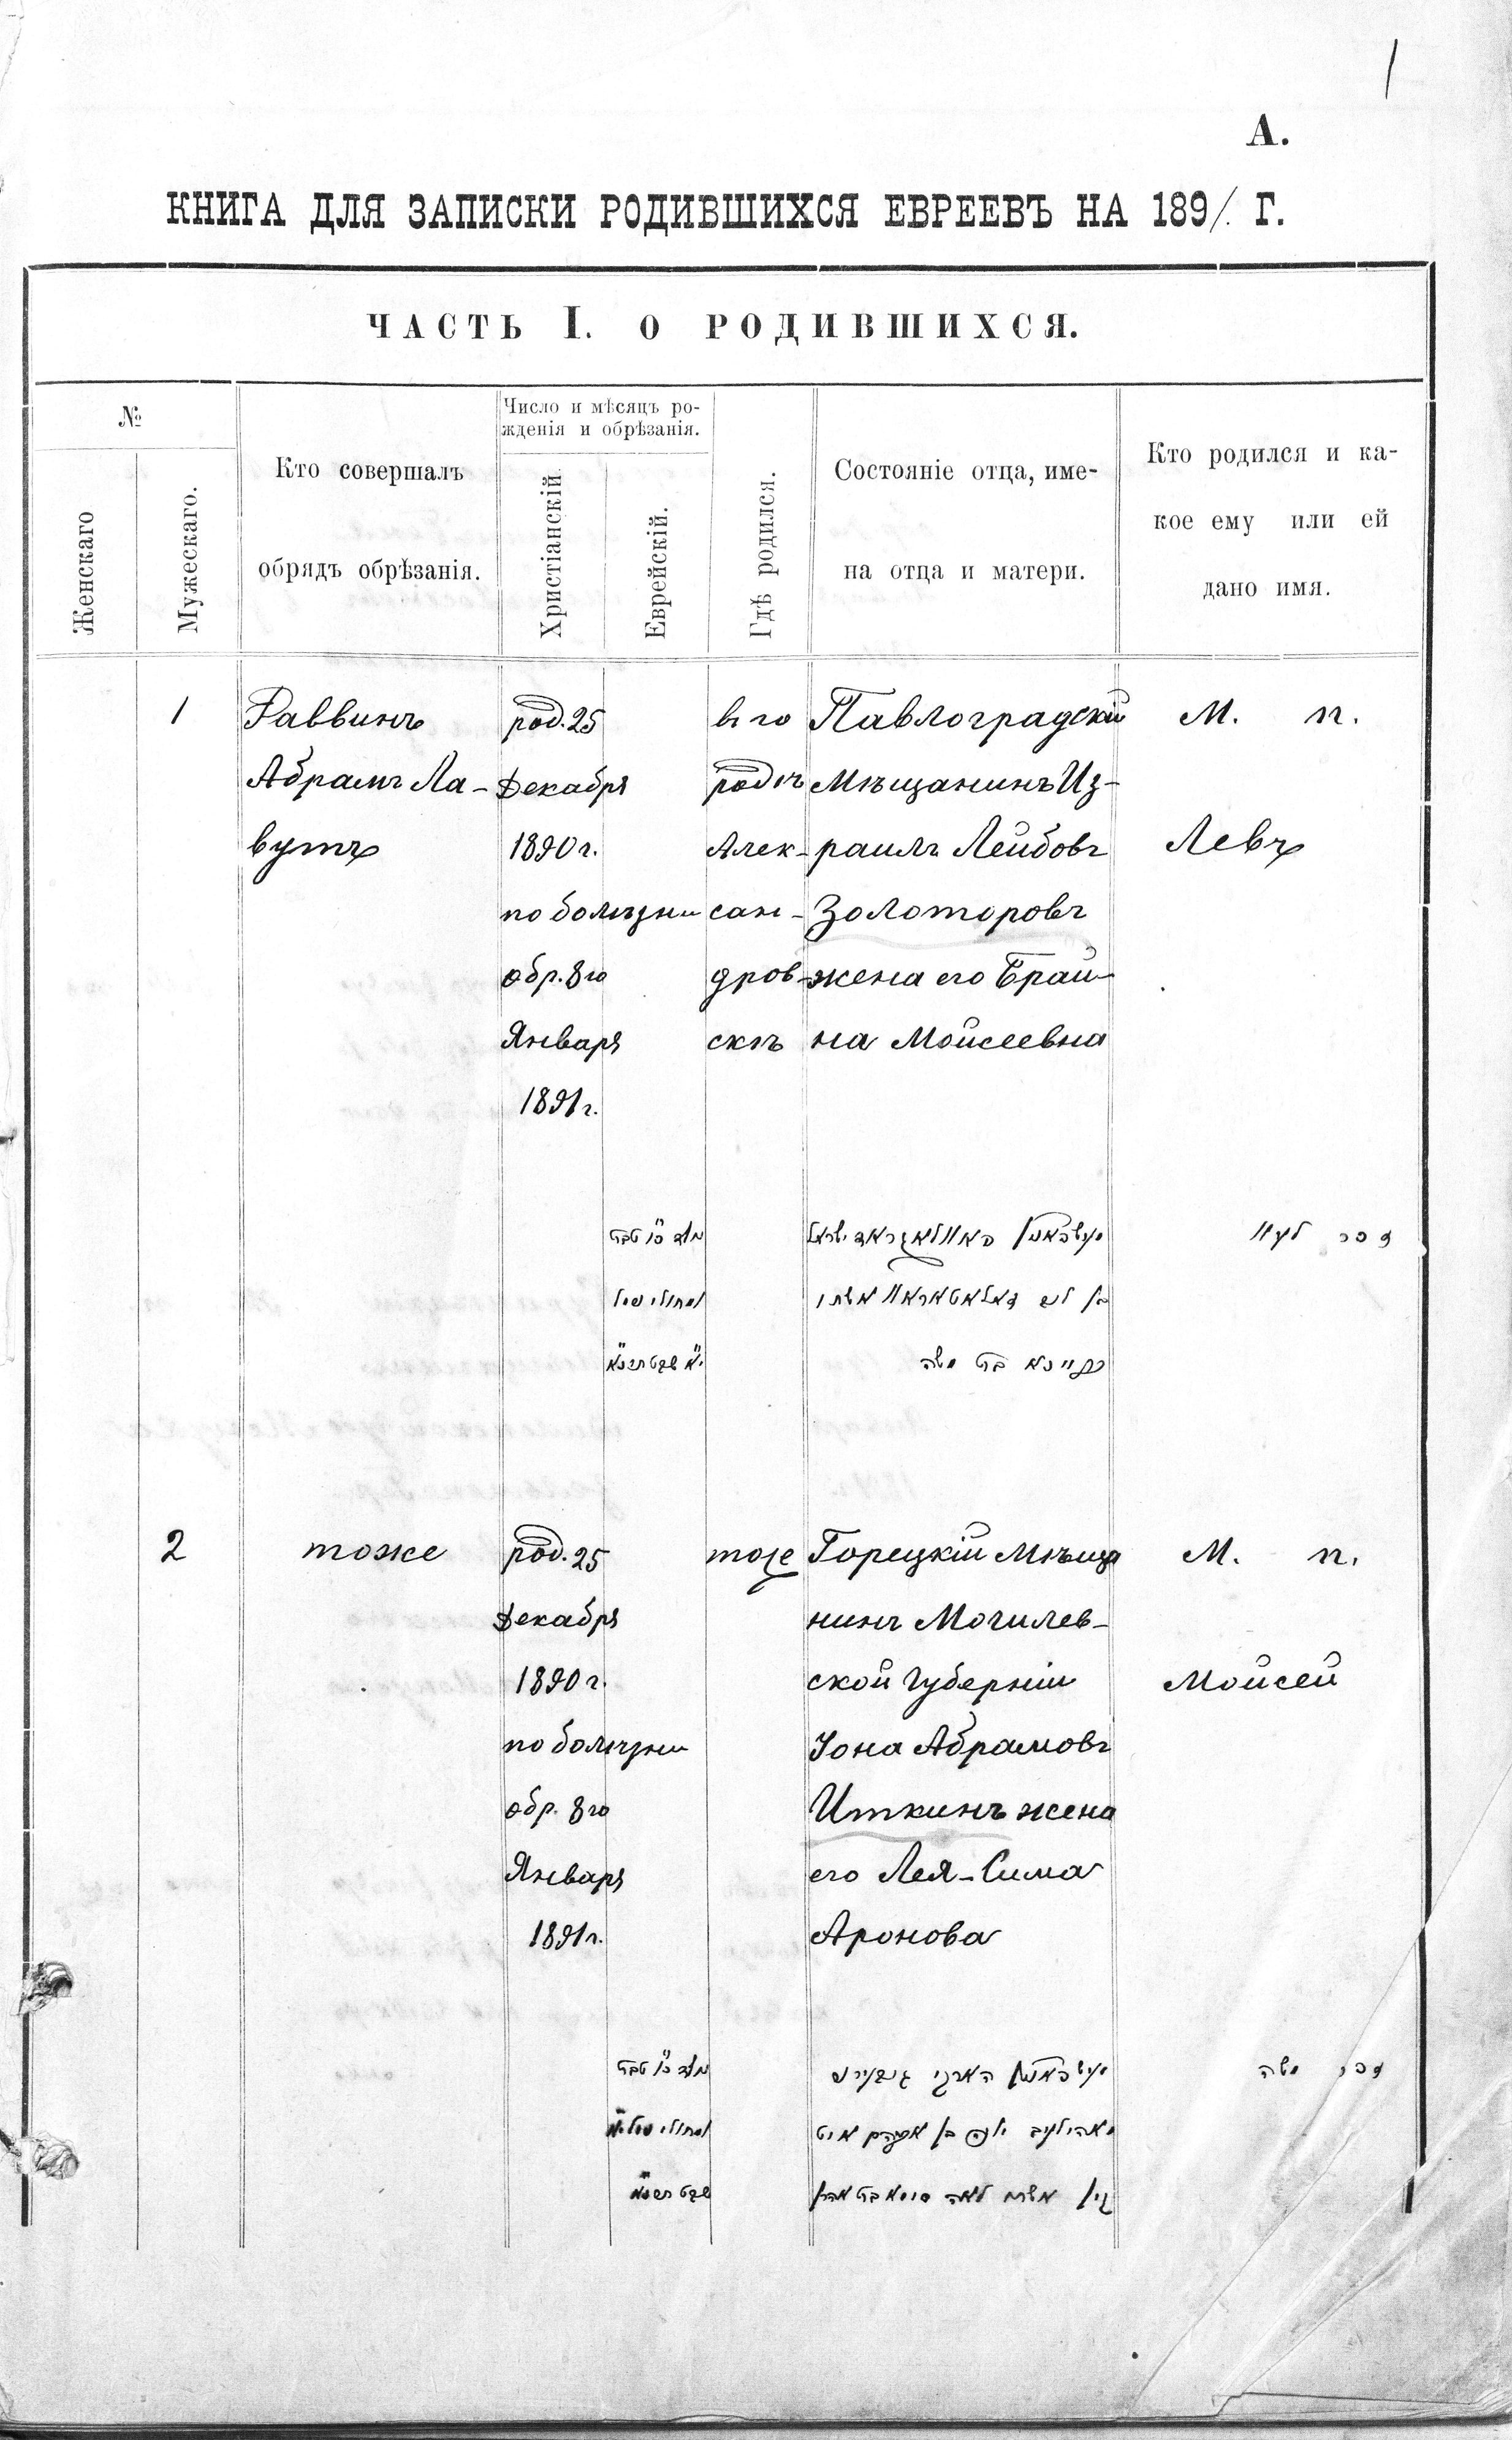 1
А.
КНИГА ДЛЯ ЗАПИСКИ РОДИВШИХСЯ ЕВРЕЕВЪ НА 1891. Г.
ЧАСТЬ I. О РОДИВШИХСЯ.
№
Женскаго
Мужескаго.
Кто совершалъ
обрядъ обрѣзанія.
Число и мѣсяцъ ро-
жденія и обрѣзанія.
Христіанскій.
Еврейскій.
Гдѣ родился.
Состояніе отца, име-
на отца и матери.
Кто родился и ка-
кое ему или ей
дано имя.
1
Раввинъ
Абрамъ Ла-
вутъ
род. 25
Декабря
1890 г.
по болѣзни
обр. 8го
Января
1891 г.
въ го
родѣ
Алек-
сан-
дров-
скѣ
Павлоградскій
Мѣщанинъ Из-
раилъ Лейбовъ
Золоторовъ
жена его Брай-
на Моисеевна
М. п.
Левъ
כ"ו טבת
י"א שבט תרנ"א
בן
בת משה
זכר
2
тоже
род. 25
Декабря
1890 г.
по болѣзни
обр. 8го
Января
1891 г.
тоже
Горецкій Мѣща
нинъ Могилев-
ской Губерніи
Іона Абрамовъ
Иткинъ жена
его Лея-Сима
Аронова
М. п.
Моисей
כ"ו טבת
שבט תרנ"א
בן אברהם
זכר משה